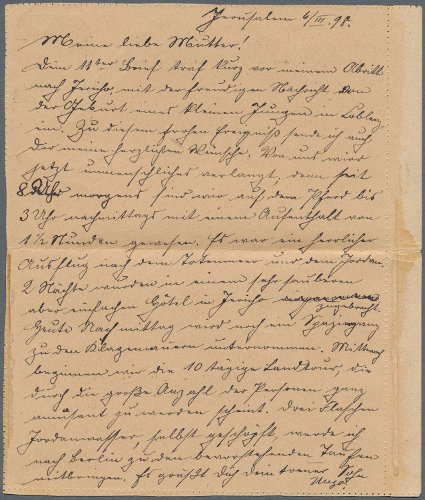 Jerusalem 6/III. 98.
Meine liebe Mutter!
Dein 11ter Brief traf kurz vor meinem Abritt
nach Jericho, mit der freudigen Nachricht von
der Geburt eines kleinen Jungen in Coblenz
ein. Zu diesem frohen Ereigniß sende ich auch
Dir meine herzlichen Wünsche. Von uns wird
jetzt unmenschliches verlangt, denn seit
8 Uhr morgens sind wir auf dem Pferd bis
3 Uhr nachmittags mit einem Aufenthalt von
1½ Stunden gewesen. Es war ein herrlicher
Ausflug nach dem Totenmeer und dem Jordan.
2 Nächte wurden in einem sehr sauberen
aber einfachen Hôtel in Jericho zugebracht.
Heute Nachmittag wird noch ein Spaziergang
zu den Klagemauern unternommen. Mittwoch
beginnen wir die 10 tägige Landtour, die
durch die große Anzahl der Personen ganz
amüsant zu werden scheint. Drei Flaschen
Jordanwasser, selbst geschöpft, werde ich
nach Berlin zu den bevorstehenden Taufen
mitbringen. Es grüßt Dich dein treuer Sohn